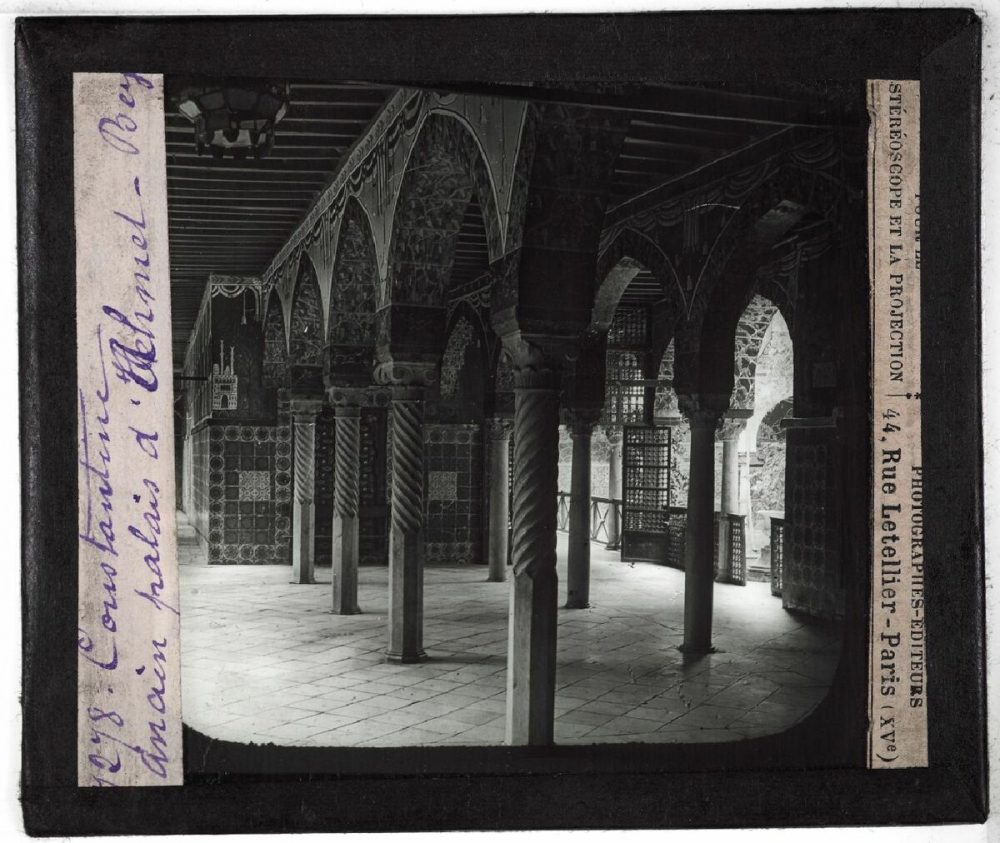 7278. Constantine
Ancien palais d'Ahmet-Bey
STÉRÉOSCOPE ET LA PROJECTION
PHOTOGRAPHES-EDITEURS
44, Rue Letellier-Paris (XVe)